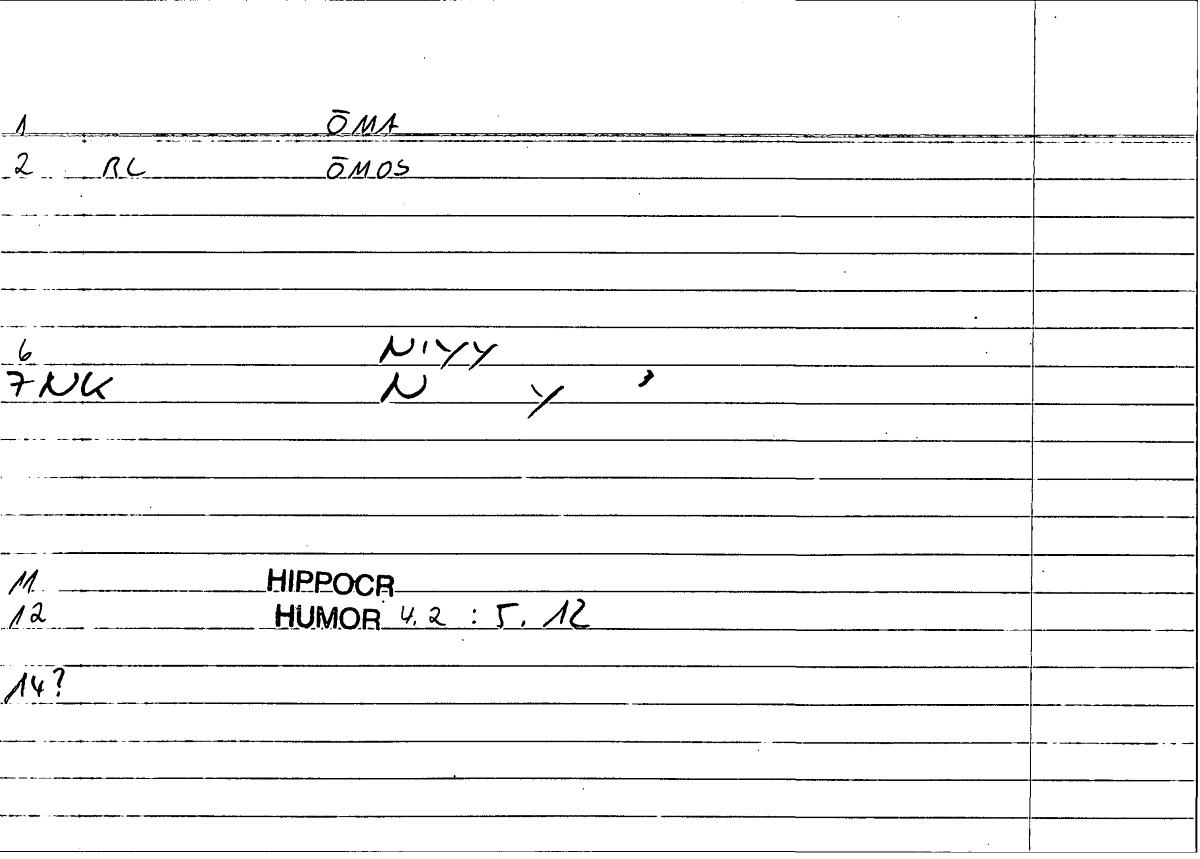 1 ŌMA
2 RL ŌMOS
6 N'YY
7 NK N Y ,
11 HIPPOCR
12 HUMOR 4.2 : 5. 12
14?